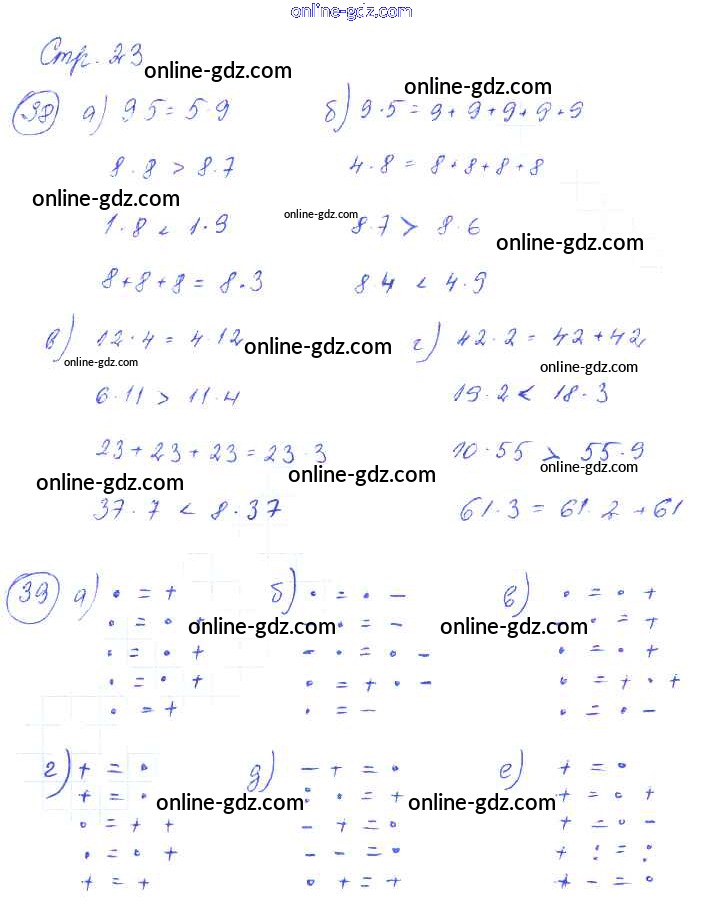 online-gdz.com
Стр. 23
online-gdz.com
online-gdz.com
38 а) 9 5 = 5·9 б) 9·5 = 9+9+9+9+9
8·8 > 8·7 4·8 = 8+8+8+8
online-gdz.com online-gdz.com
1·8 < 1·9 8·7 > 8·6
online-gdz.com
8+8+8 = 8·3 8·4 < 4·9
в) 12·4 = 4·12 г) 42·2 = 42+42
online-gdz.com
online-gdz.com online-gdz.com
6·11 > 11·4 19·2 < 18·3
23+23+23 = 23·3 10·55 > 55·9
online-gdz.com online-gdz.com online-gdz.com
37·7 < 8·37 61·3 = 61·2+61
39 а) · = + б) · = · − в) · = · +
online-gdz.com online-gdz.com
г) + = · д) − + = · е) + = ·
online-gdz.com online-gdz.com